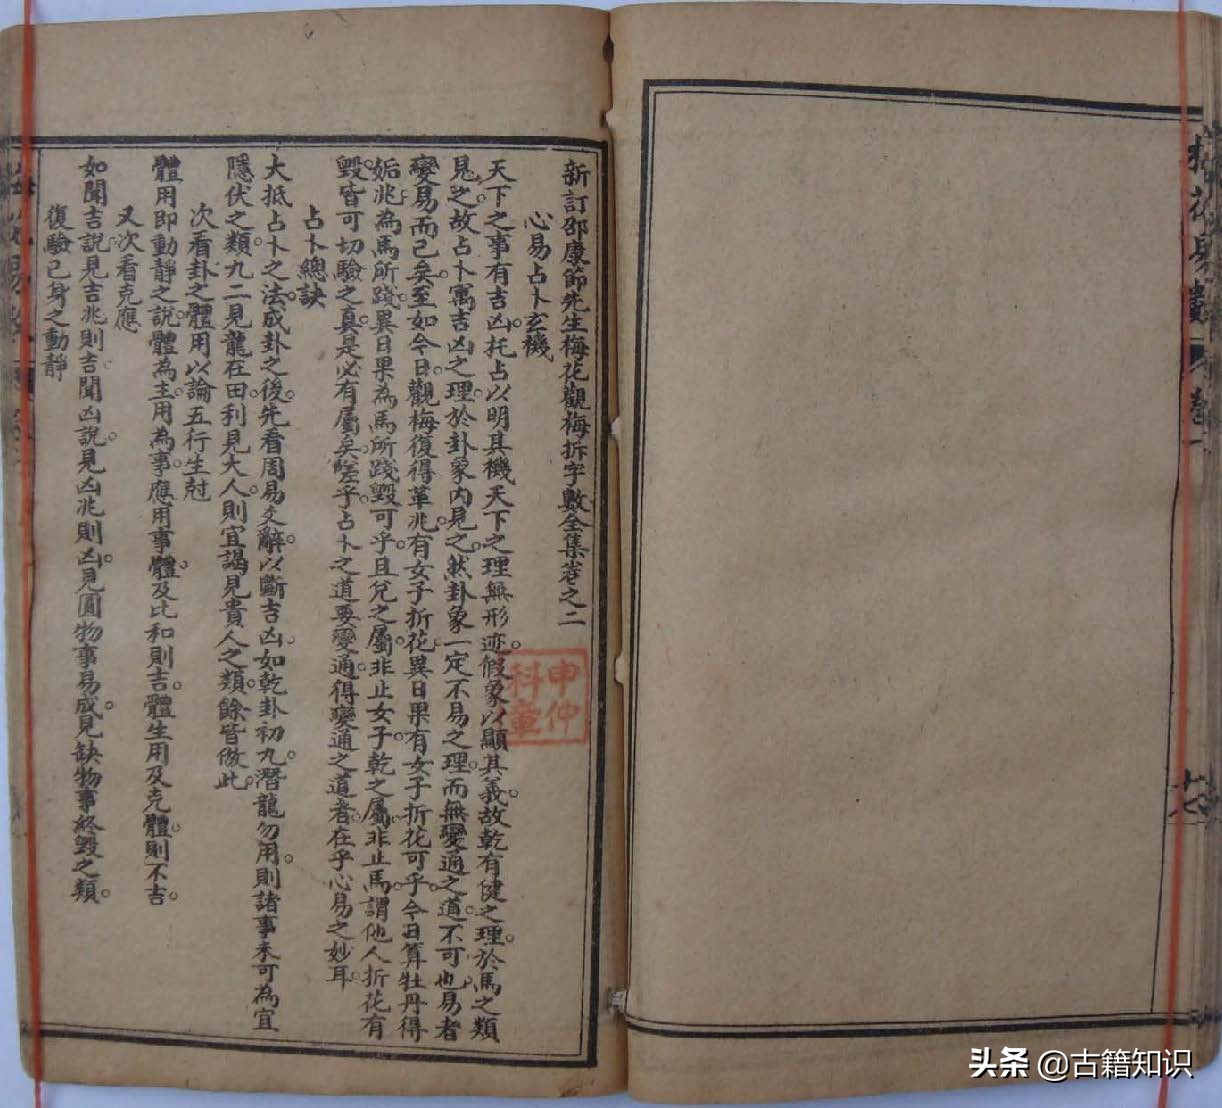 新訂邵康節先生梅花觀梅拆字數全集卷之二
心易占卜玄機
天下之事有吉凶。托占以明其機。天下之理無形迹。假象以顯其義。故乾有健之理。於馬之類
見之。故占卜寓吉凶之理。於卦象內見之。然卦象一定不易之理。而無變通之道。不可也。易者
變易而已矣。至如今日。觀梅復得革兆。有女子折花。異日果有女子折花可乎。今日算牡丹得
姤兆。為馬所踐。異日果為馬所踐毀可乎。且兌之屬。非止女子。乾之屬。非止馬。謂他人折花有
毀。皆可切驗之。真是必有屬矣。嗟乎。占卜之道。要變通。得變通之道者。在乎心易之妙耳。
占卜總訣
大抵占卜之法。成卦之後。先看周易爻辭。以斷吉凶。如乾卦初九。潛龍勿用。則諸事未可為。宜
隱伏之類。九二見龍在田。利見大人。則宜謁見貴人之類。餘皆倣此。
次看卦之體用。以論五行生尅
體用即動靜之說。體為主。用為事。應用事體。及比和則吉。體生用。及克體。則不吉。
又次看克應
如聞吉說。見吉兆則吉。聞凶說。見凶兆則凶。見圓物事易成。見缺物事終毀之類。
復驗已身之動靜
申仲
科章
頭条 @古籍知识